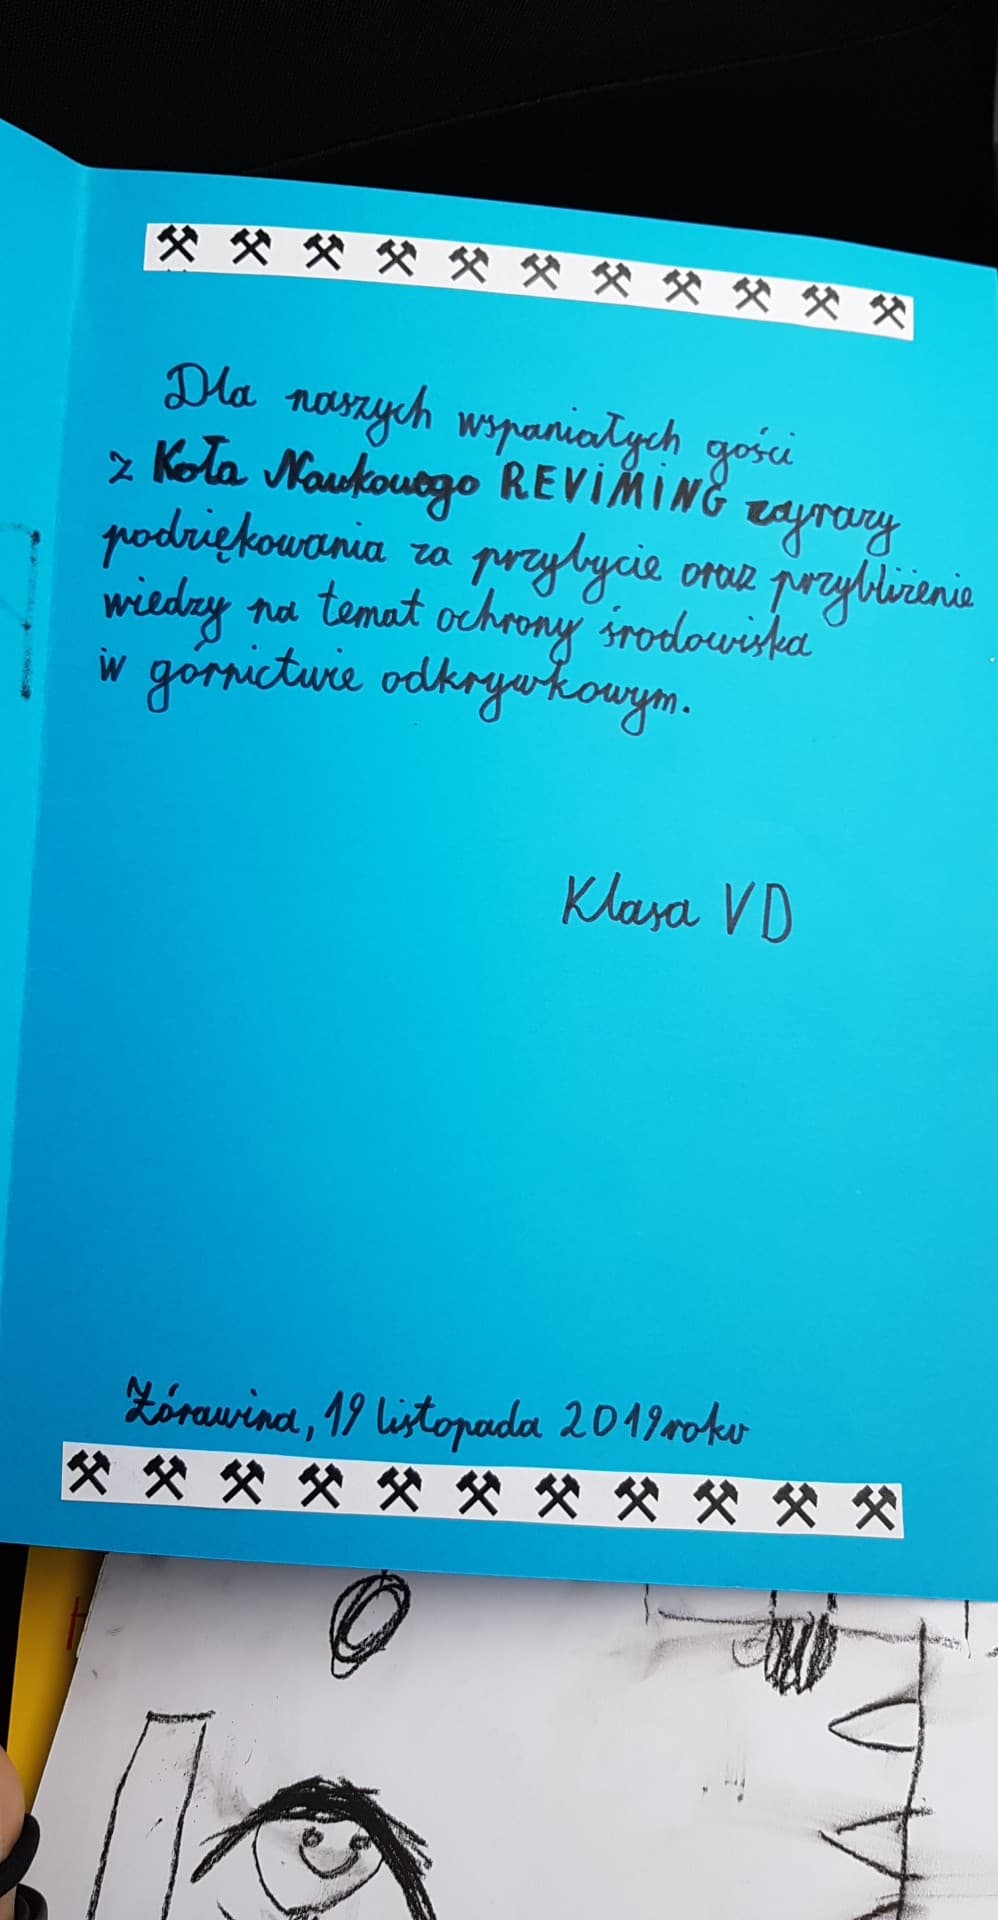 Dla naszych wspaniałych gości
z Koła Naukowego REViMiNG wyrazy
podziękowania za przybycie oraz przybliżenie
wiedzy na temat ochrony środowiska
w górnictwie odkrywkowym.
Klasa VD
Żórawina, 19 listopada 2019 roku